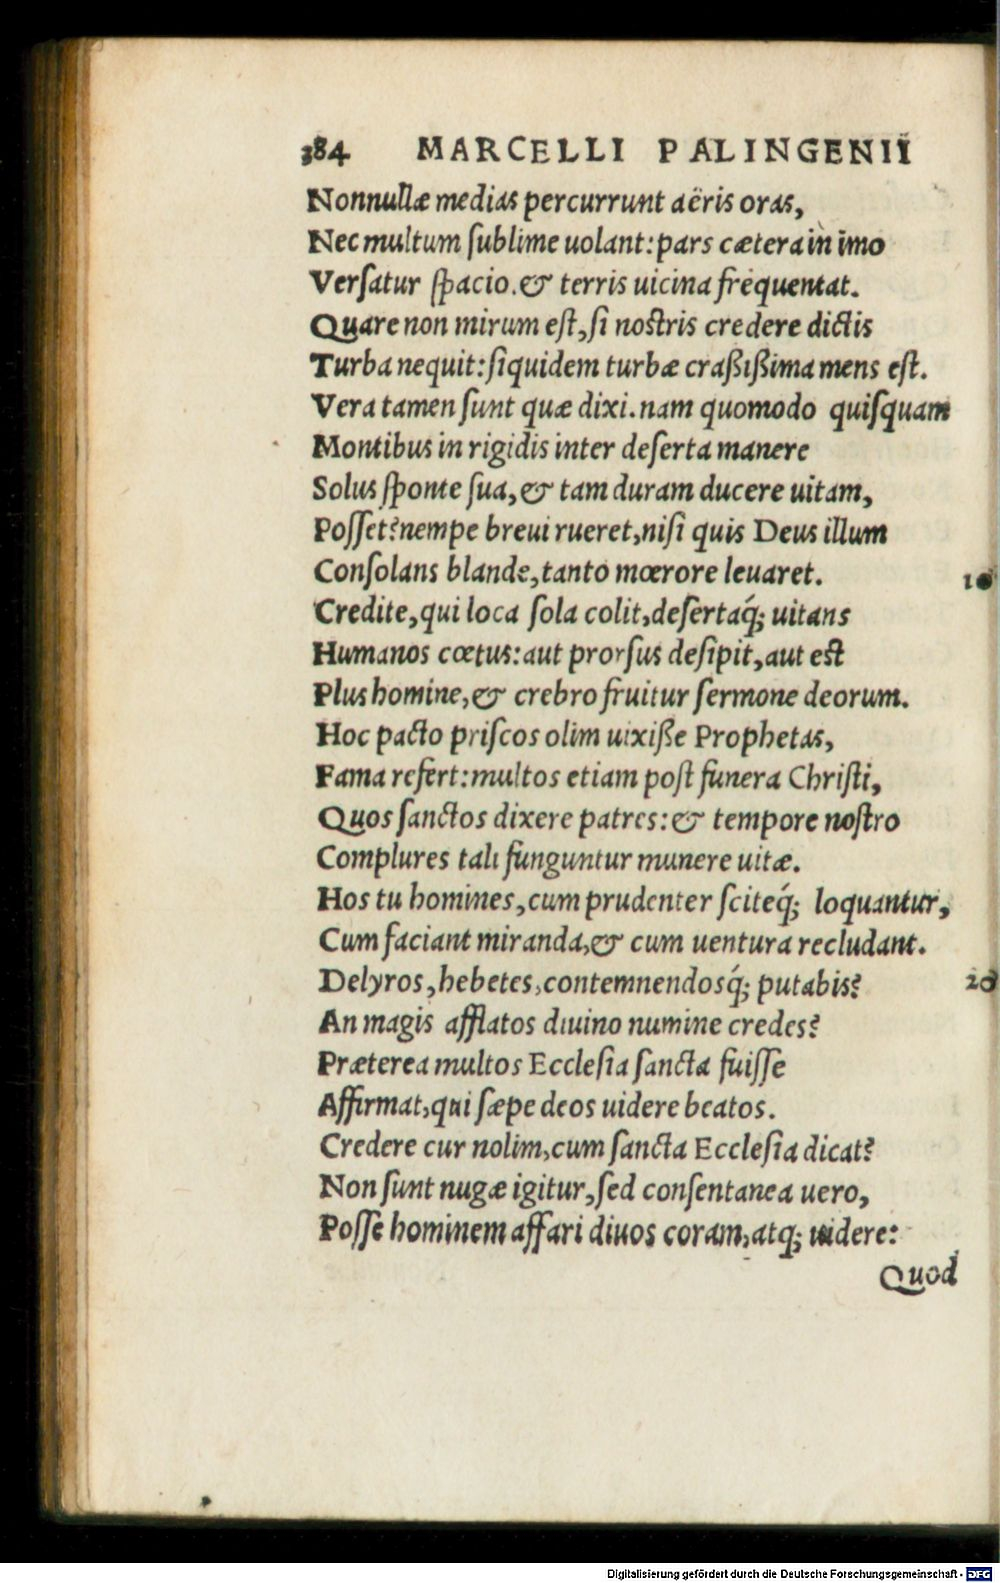 384 MARCELLI PALINGENII
Nonnullæ medias percurrunt aëris oras,
Nec multum ſublime uolant: pars cætera in imo
Verſatur ſpacio. & terris uicina frequentat.
Quare non mirum eſt, ſi noſtris credere dictis
Turba nequit: ſiquidem turbæ craßißima mens eſt.
Vera tamen ſunt quæ dixi. nam quomodo quiſquam
Montibus in rigidis inter deſerta manere
Solus ſponte ſua, & tam duram ducere uitam,
Poſſet? nempe breui rueret, niſi quis Deus illum
Conſolans blande, tanto mœrore leuaret. 10
Credite, qui loca ſola colit, deſertaq́; uitans
Humanos cœtus: aut prorſus deſipit, aut eſt
Plus homine, & crebro fruitur ſermone deorum.
Hoc pacto priſcos olim uixiße Prophetas,
Fama refert: multos etiam poſt funera Chriſti,
Quos ſanctos dixere patres: & tempore noſtro
Complures tali funguntur munere uitæ.
Hos tu homines, cum prudenter ſciteq́; loquantur,
Cum faciant miranda, & cum uentura recludant.
Delyros, hebetes, contemnendosq́; putabis? 20
An magis afflatos diuino numine credes?
Præterea multos Eccleſia ſancta fuiſſe
Affirmat, qui ſæpe deos uidere beatos.
Credere cur nolim, cum ſancta Eccleſia dicat?
Non ſunt nugæ igitur, ſed conſentanea uero,
Poſſe hominem affari diuos coram, atq; uidere:
Quod
Digitalisierung gefördert durch die Deutsche Forschungsgemeinschaft - DFG